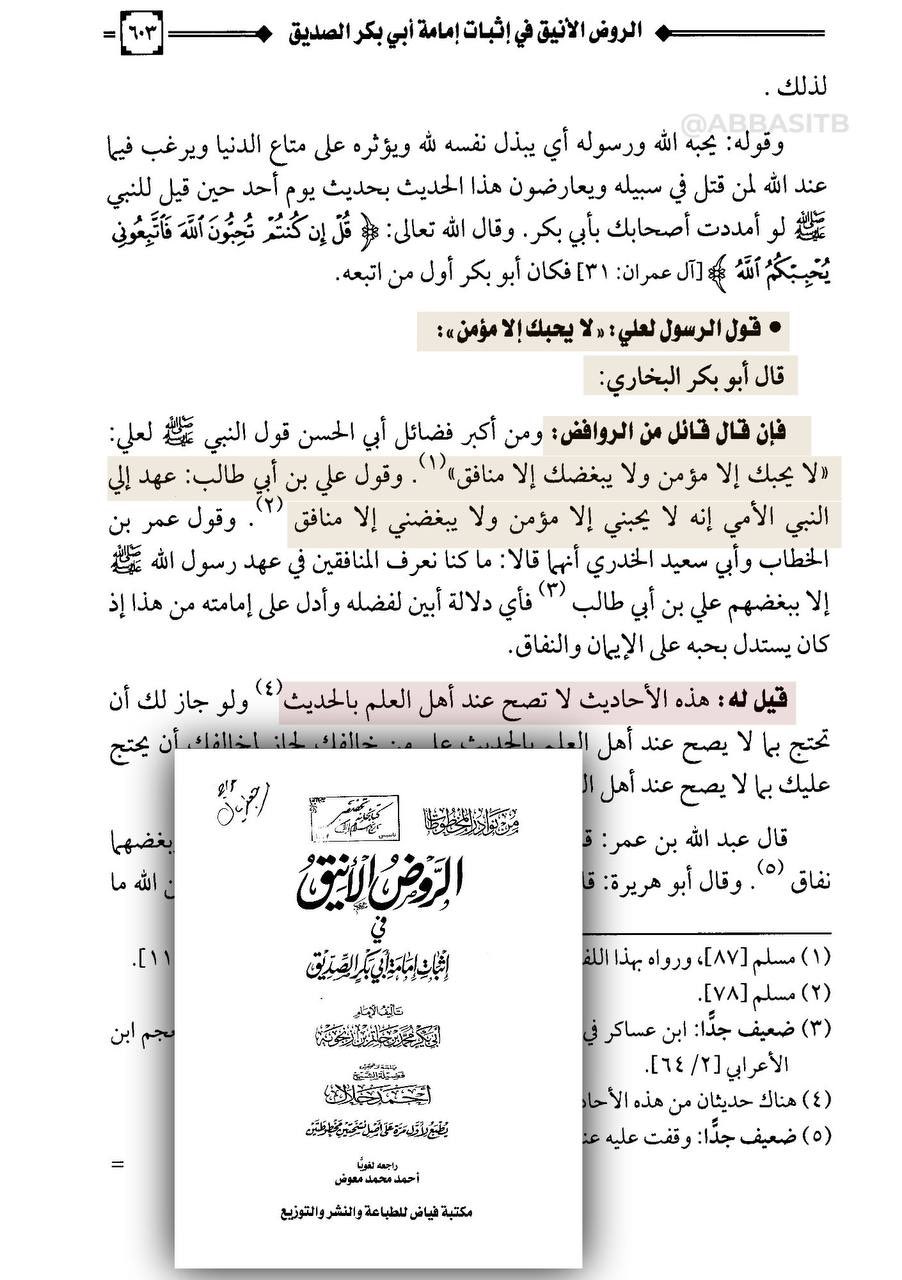 الروض الأنيق في إثبات إمامة أبي بكر الصديق
٦٠٣
لذلك .
@ABBASITB
وقوله: يحبه الله ورسوله أي يبذل نفسه لله ويؤثره على متاع الدنيا ويرغب فيما
عند الله لمن قتل في سبيله ويعارضون هذا الحديث بحديث يوم أحد حين قيل للنبي
ﷺ لو أمددت أصحابك بأبي بكر. وقال الله تعالى: ﴿ قُلْ إِن كُنتُمْ تُحِبُّونَ ٱللَّهَ فَٱتَّبِعُونِى
يُحْبِبْكُمُ ٱللَّهُ ﴾ [آل عمران: ٣١] فكان أبو بكر أول من اتبعه.
• قول الرسول لعلي: «لا يحبك إلا مؤمن»:
قال أبو بكر البخاري:
فإن قال قائل من الروافض: ومن أكبر فضائل أبي الحسن قول النبي ﷺ لعلي:
«لا يحبك إلا مؤمن ولا يبغضك إلا منافق»(١). وقول علي بن أبي طالب: عهد إلي
النبي الأمي إنه لا يحبني إلا مؤمن ولا يبغضني إلا منافق (٢). وقول عمر بن
الخطاب وأبي سعيد الخدري أنهما قالا: ما كنا نعرف المنافقين في عهد رسول الله ﷺ
إلا ببغضهم علي بن أبي طالب (٣) فأي دلالة أبين لفضله وأدل على إمامته من هذا إذ
كان يستدل بحبه على الإيمان والنفاق.
قيل له: هذه الأحاديث لا تصح عند أهل العلم بالحديث(٤) ولو جاز لك أن
تحتج بما لا يصح عند أهل العلم بالحديث على من خالفك لجاز لمخالفك أن يحتج
عليك بما لا يصح عند أهل
قال عبد الله بن عمر:
بغضهما
نفاق (٥). وقال أبو هريرة:
الله ما
(١) مسلم [٨٧]، ورواه بهذا
(٢) مسلم [٧٨].
(٣) ضعيف جدًّا: ابن عساكر في
ابن
الأعرابي [٢/ ٦٤].
(٤) هناك حديثان من هذه
(٥) ضعيف جدًّا: وقفت عليه
=
من نوادر المخطوطات
الروض الأنيق
في
إثبات إمامة أبي بكر الصديق
تأليف الإمام
أبي بكر محمد بن حاتم بن زنجويه
فضيلة الشيخ
أحمد جلال
يطبع لأول مرة على أصل نسختين مخطوطتين
راجعه لغويًا
أحمد محمد معوض
مكتبة فياض للطباعة والنشر والتوزيع